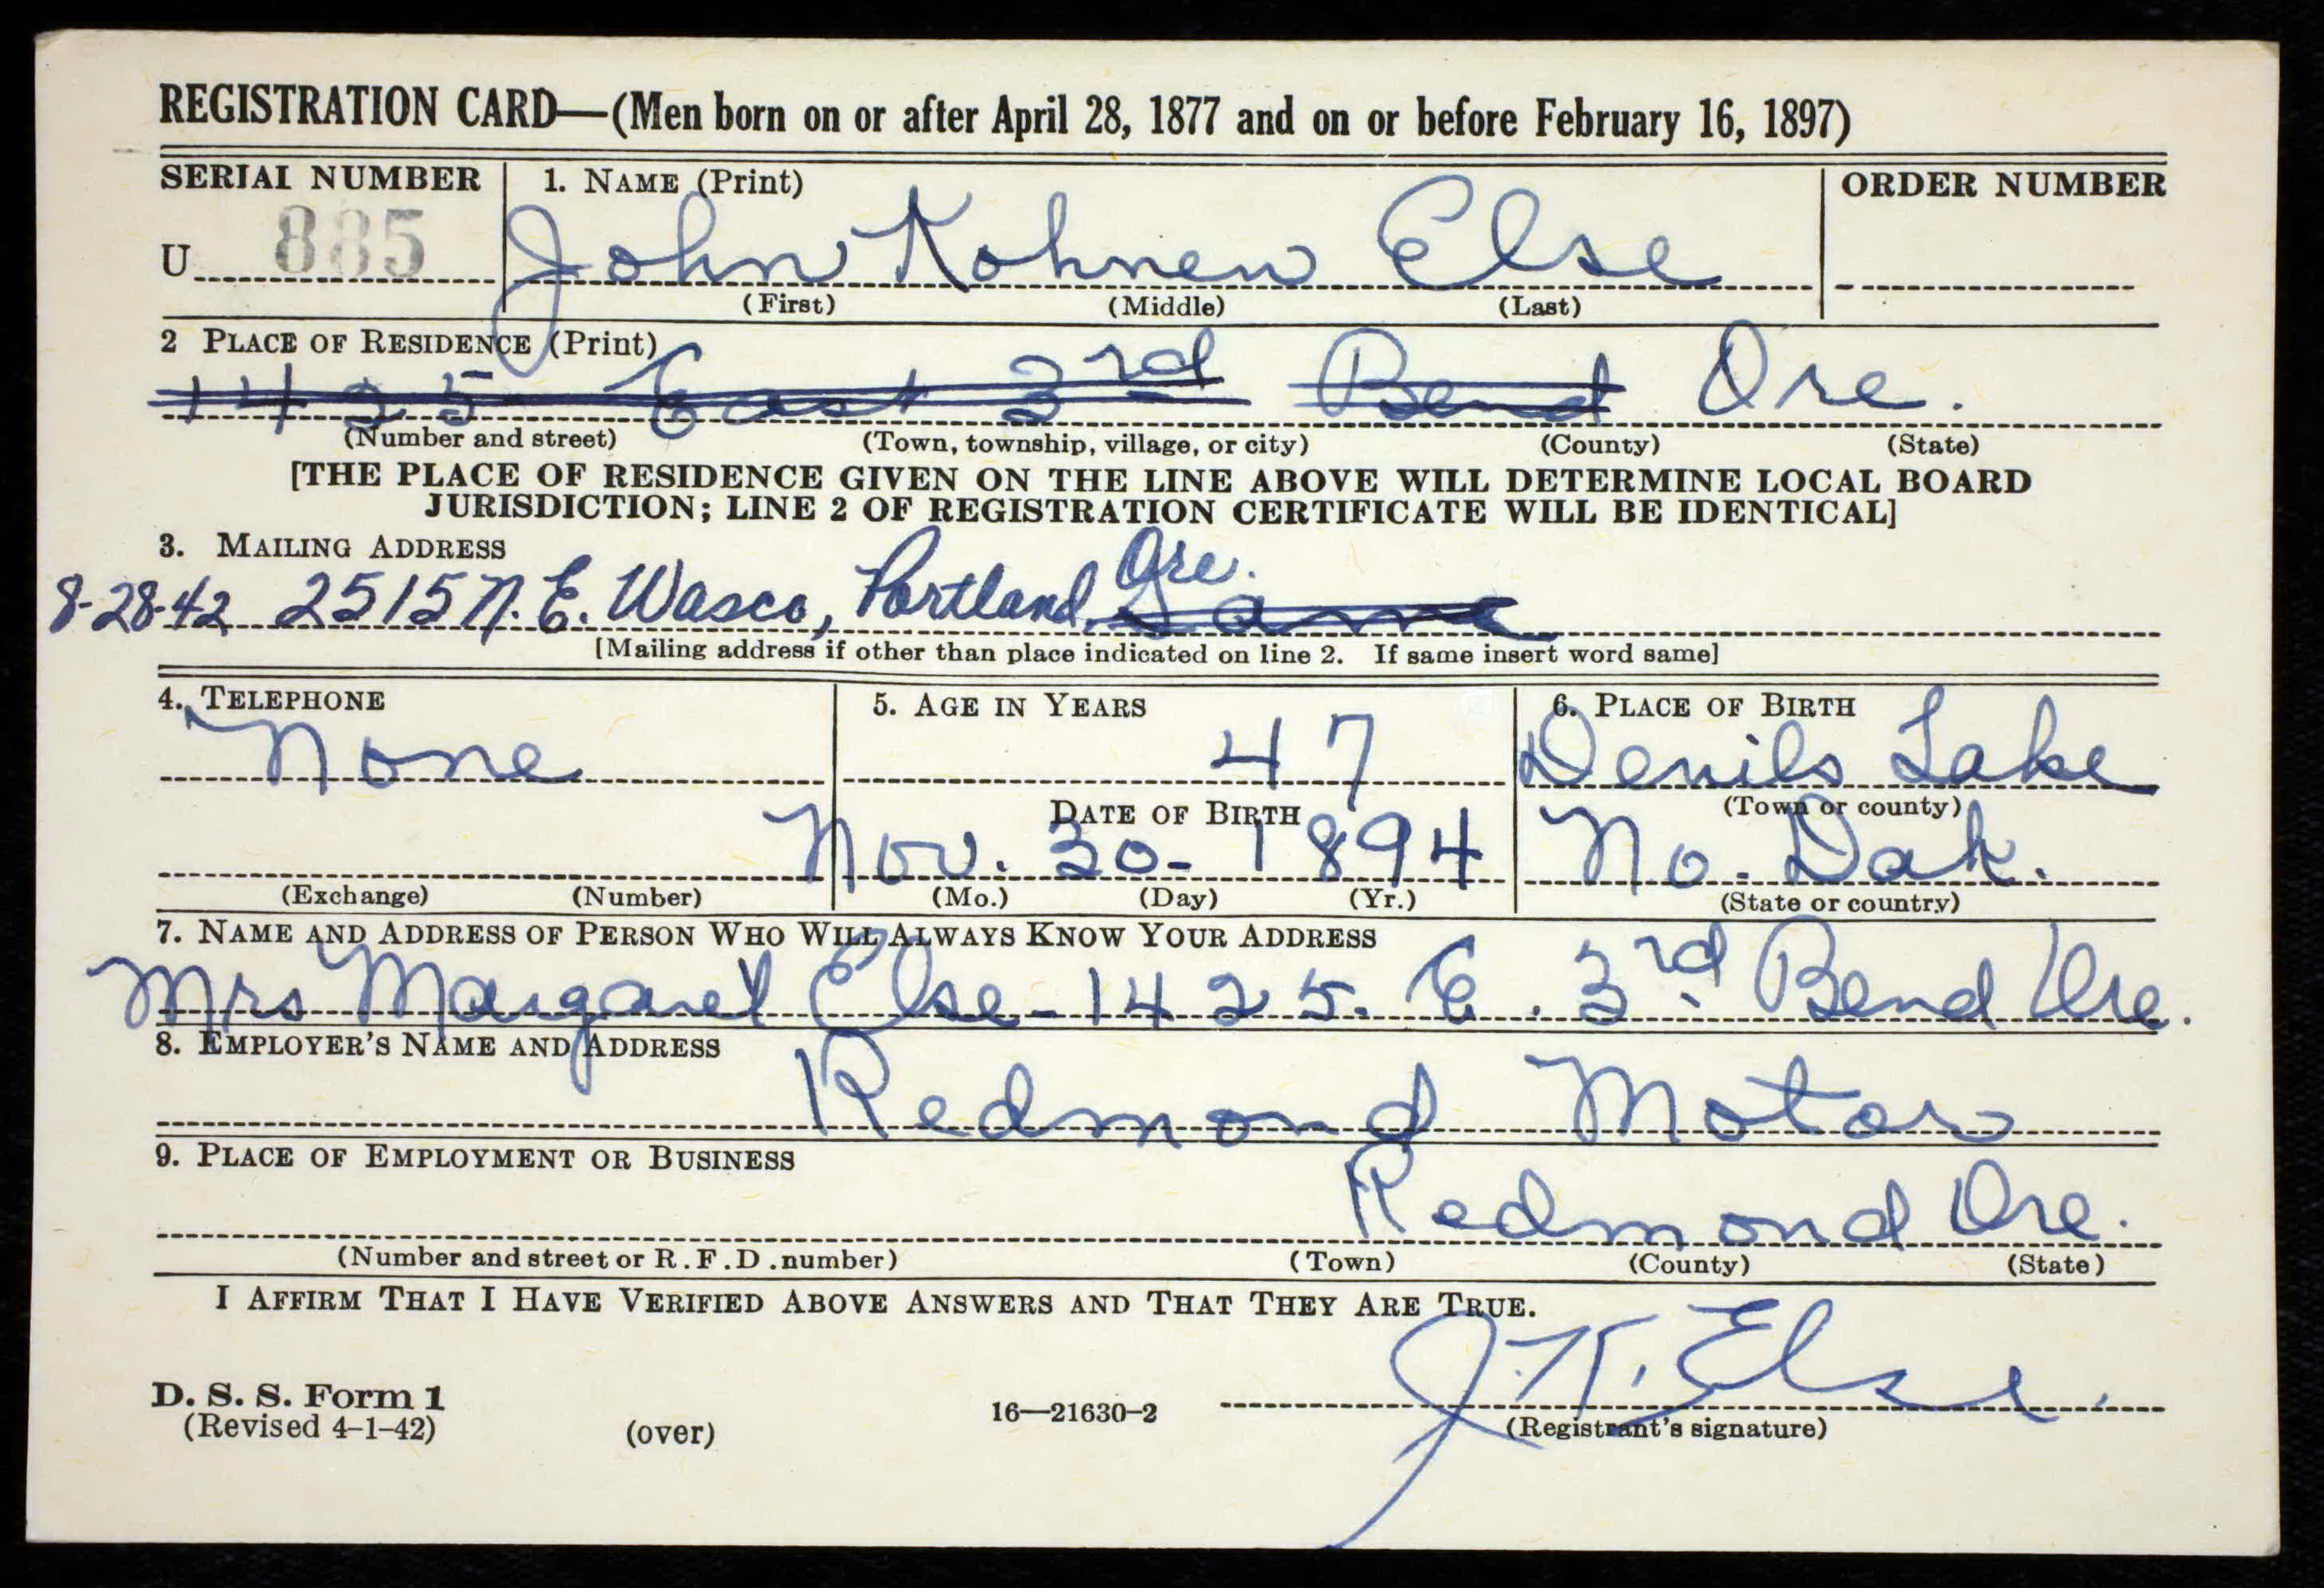 REGISTRATION CARD—(Men born on or after April 28, 1877 and on or before February 16, 1897)
SERIAL NUMBER 1. NAME (Print) ORDER NUMBER
U 885 John Kohnen Else
(First) (Middle) (Last)
2 PLACE OF RESIDENCE (Print)
1425 East 3rd Bend Ore.
(Number and street) (Town, township, village, or city) (County) (State)
[THE PLACE OF RESIDENCE GIVEN ON THE LINE ABOVE WILL DETERMINE LOCAL BOARD
JURISDICTION; LINE 2 OF REGISTRATION CERTIFICATE WILL BE IDENTICAL]
3. MAILING ADDRESS
8-28-42 2515 N. E. Wasco, Portland, Ore. Same
[Mailing address if other than place indicated on line 2. If same insert word same]
4. TELEPHONE 5. AGE IN YEARS 6. PLACE OF BIRTH
None 47 Devils Lake
DATE OF BIRTH (Town or county)
Nov. 30- 1894 No. Dak.
(Exchange) (Number) (Mo.) (Day) (Yr.) (State or country)
7. NAME AND ADDRESS OF PERSON WHO WILL ALWAYS KNOW YOUR ADDRESS
Mrs Margaret Else - 1425. E. 3rd. Bend Ore.
8. EMPLOYER'S NAME AND ADDRESS
Redmond Motor
9. PLACE OF EMPLOYMENT OR BUSINESS
Redmond Ore.
(Number and street or R.F.D. number) (Town) (County) (State)
I AFFIRM THAT I HAVE VERIFIED ABOVE ANSWERS AND THAT THEY ARE TRUE.
J. K. Else.
D. S. S. Form 1
(Revised 4-1-42) (over) 16—21630-2 (Registrant's signature)